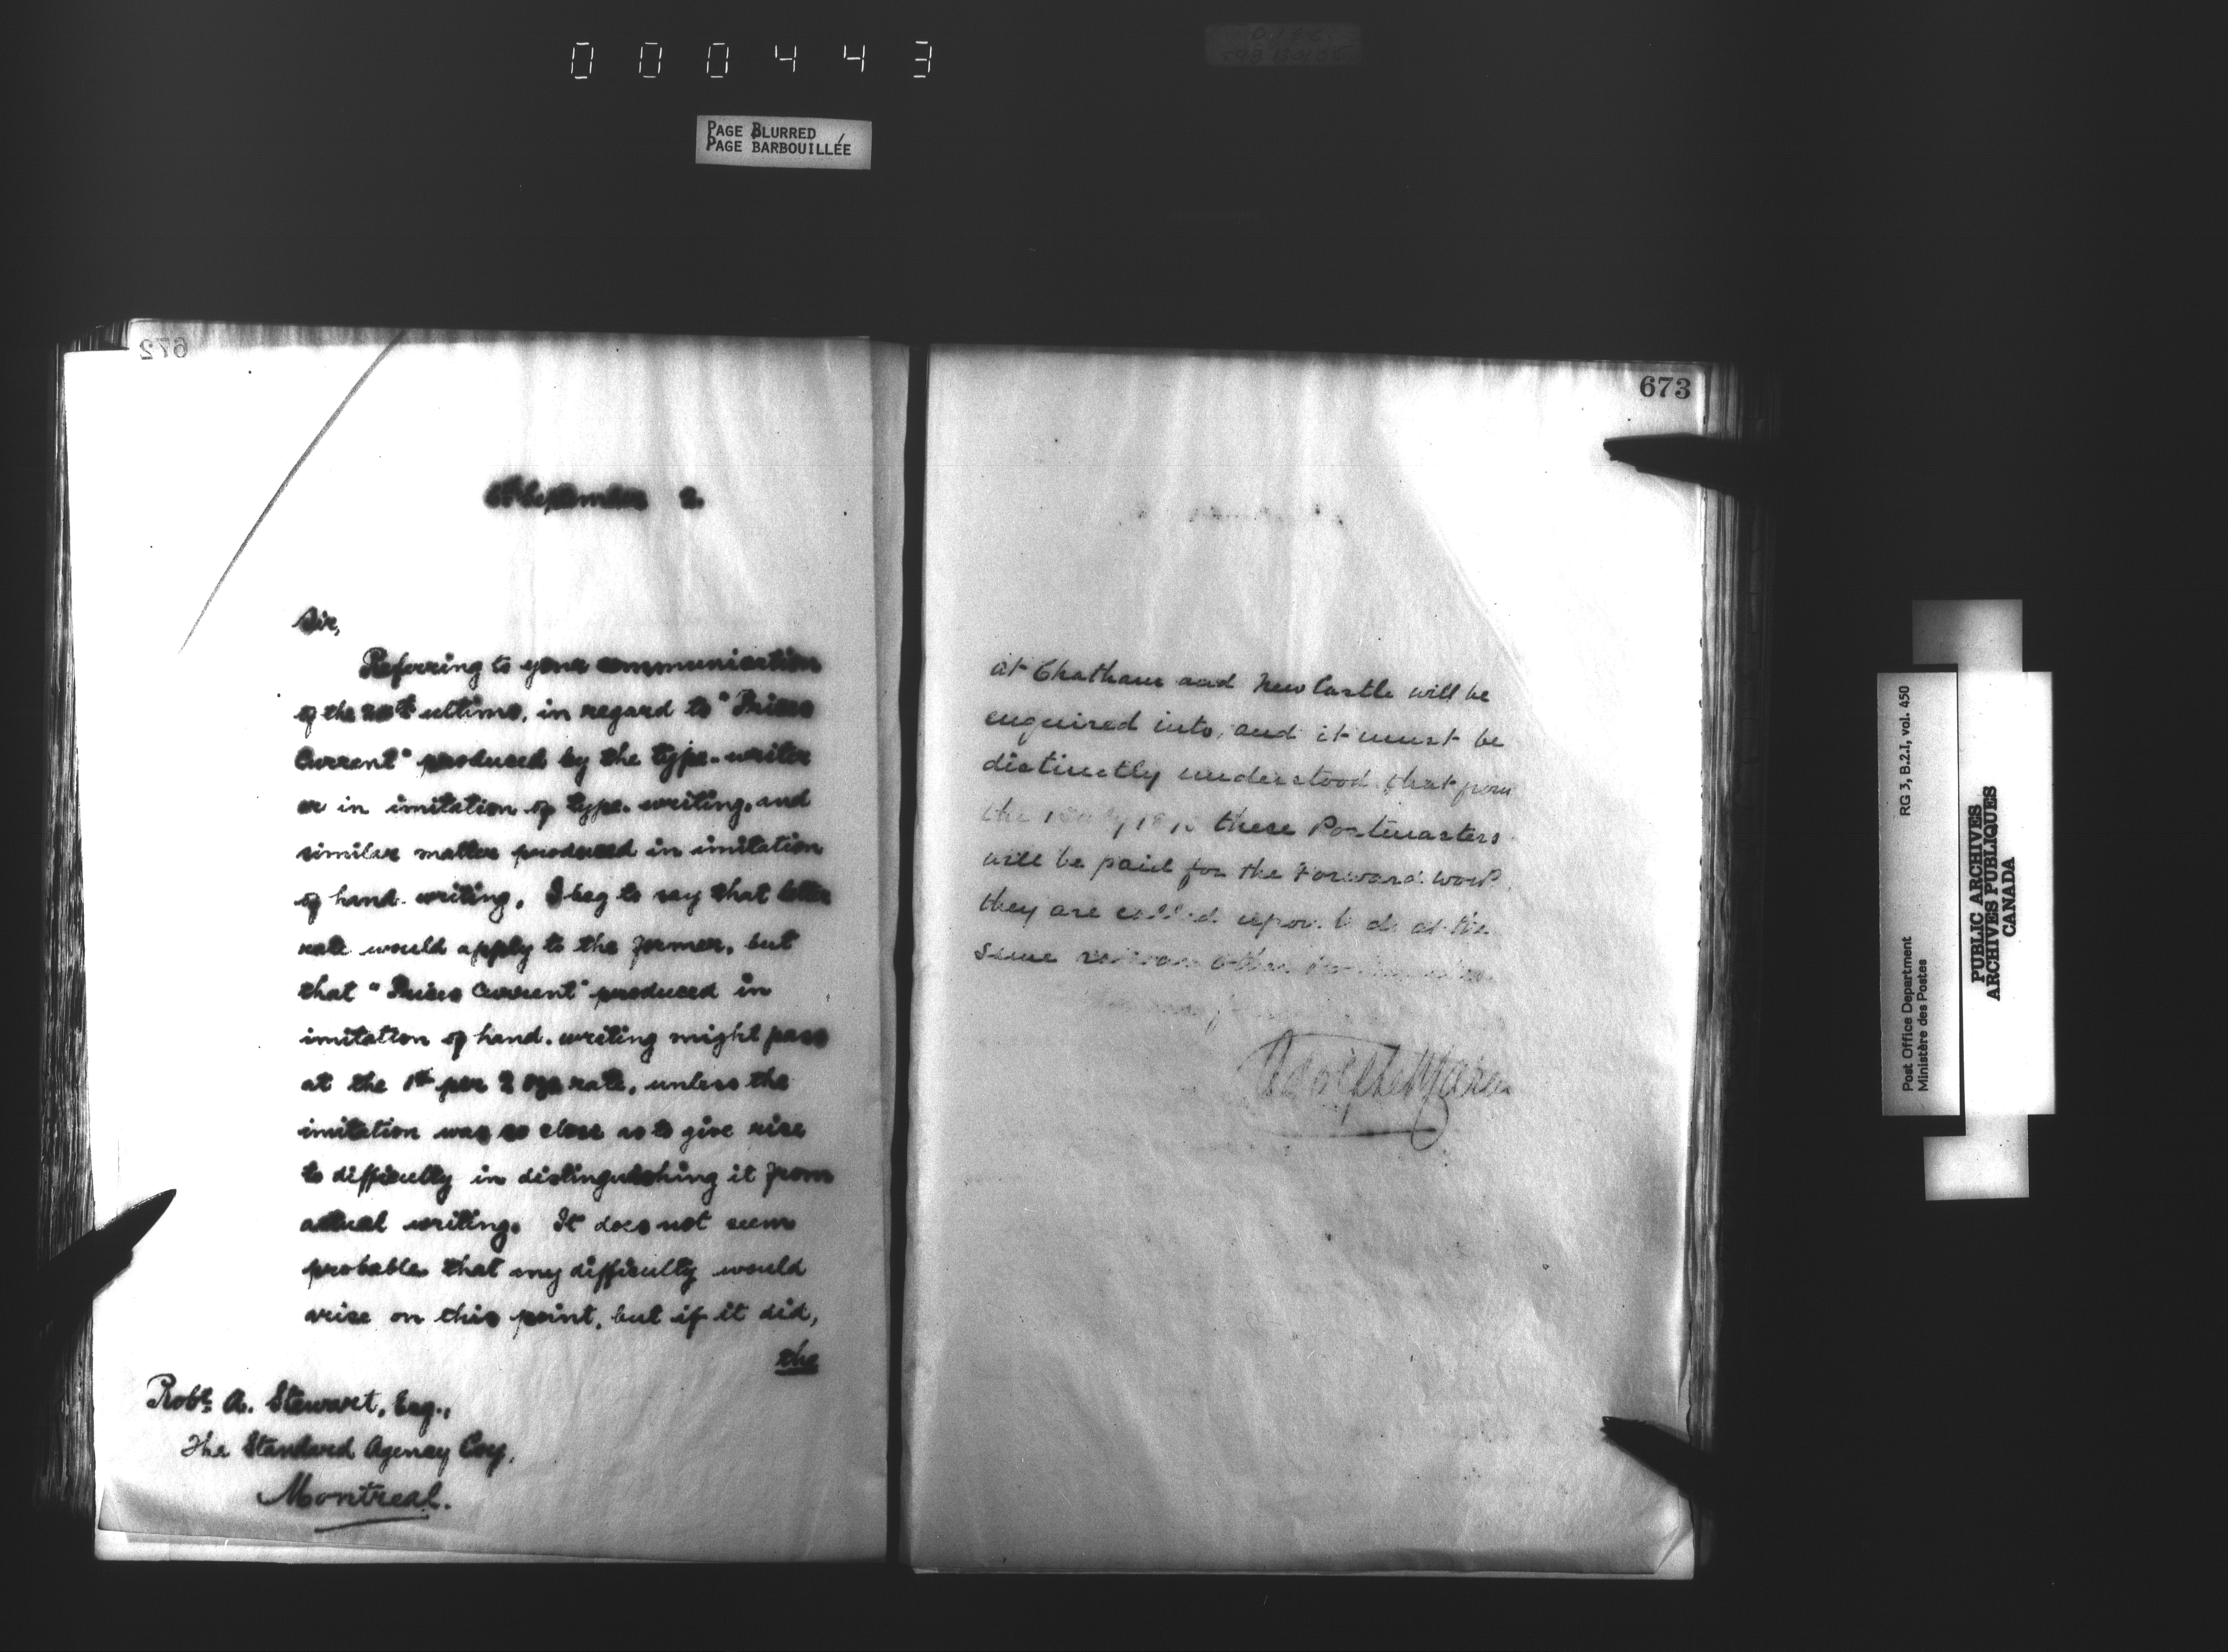 000443
PAGE BLURRED
PAGE BARBOUILLÉE
672
6th September 2.
Sir,
Referring to your communication
of the 20th ultimo, in regard to "Prices
Current" produced by the type-writer
or in imitation of type-writing, and
similar matter produced in imitation
of hand-writing, I beg to say that letter
rate would apply to the former, but
that "Prices Current" produced in
imitation of hand-writing might pass
at the 1¢ per 2 ozs rate, unless the
imitation was so close as to give rise
to difficulty in distinguishing it from
actual writing. It does not seem
probable that any difficulty would
arise on this point, but if it did,
the
Robt. A. Stewart, Esq.,
The Standard Agency Coy,
Montreal.
673
at Chatham and Newcastle will be
enquired into, and it must be
distinctly understood that from
the 1 July these Postmasters
will be paid for the Forward work
they are called upon to do at the
same as other
RG 3, B.2.I, vol. 450
Post Office Department
Ministère des Postes
PUBLIC ARCHIVES
ARCHIVES PUBLIQUES
CANADA